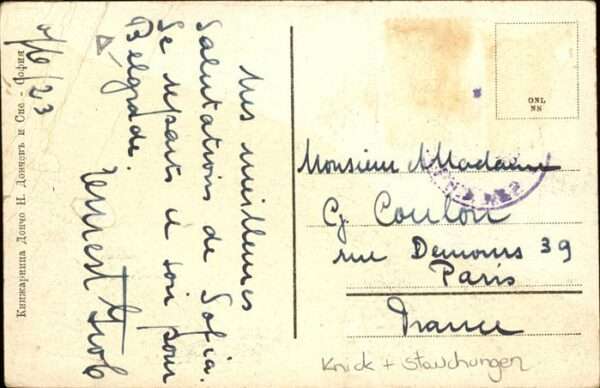 Mes meilleures
salutations de Sofia.
Je repars ce soir pour
Bélgrade.
Ernest
/6/23
Книжарница Дончо Н. Дончевъ и Сие - София
ONL
NS
Monsieur Madame
Coulon
rue Demours 39
Paris
France
Knick + Stauchungen